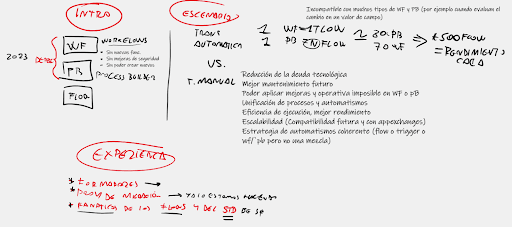 INTRO
2023
DEPREC
WF
WORKFLOWS
Sin nuevas func.
Sin mejoras de seguridad
Sin poder crear nuevos
PB
PROCESS BUILDER
FLOW
ESCENARIO
TRANS
AUTOMATICA
VS.
T. MANUAL
Incompatible con muchos tipos de WF y PB (por ejemplo cuando evaluam el
cambio en un valor de campo)
1 WF = 1 FLOW
1 PB = N FLOW
30 PB
70 WF
+500 FLOW
= RENDIMIENTO
CAEA
Reducción de la deuda tecnológica
Mejor mantenimiento futuro
Poder aplicar mejoras y operativa imposible en WF o pB
Unificación de procesos y automatismos
Eficiencia de ejecución, mejor rendimiento
Escalabilidad (Compatibilidad futura y con appexchanges)
Estrategia de automatismos coherente (flow o trigger o
wf/`pb pero no una mezcla)
EXPERIENCIA
* FORMADORES
* PROY DE MIGRACION
* FANATICOS DE LOS FLOWS Y DEL STD DE SF